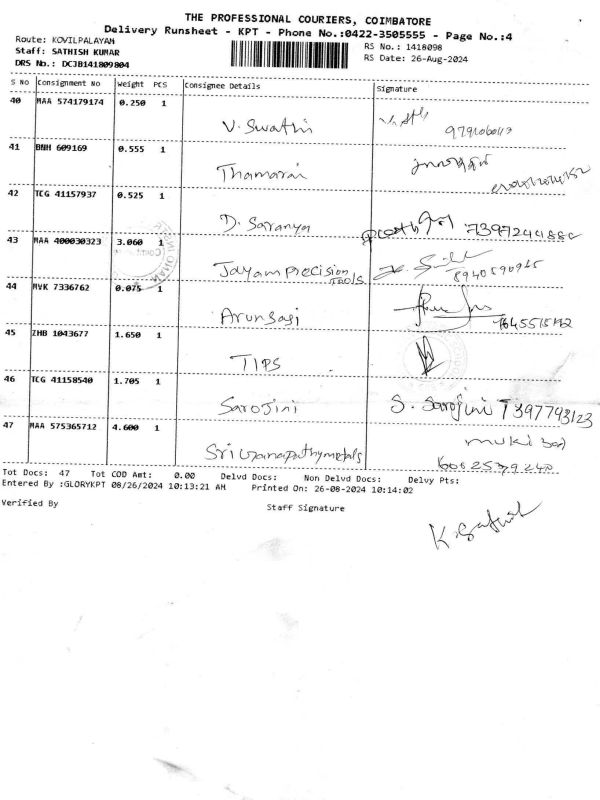 THE PROFESSIONAL COURIERS, COIMBATORE
Delivery Runsheet - KPT - Phone No.:0422-3505555 - Page No.:4
Route: KOVILPALAYAM
RS No.: 1418098
Staff: SATHISH KUMAR
RS Date: 26-Aug-2024
DRS No.: DCJB141809804
S No Consignment No Weight PCS Consignee Details Signature
40 MAA 574179174 0.250 1
V. Swathi
41 BNH 609169 0.555 1
Thamarai
42 TCG 41157937 0.525 1
D. Saranya 7397244880
43 MAA 400030323 3.060 1
Jayam precision Tools 8940590965
44 MVK 7336762 0.075 1
Arunsasi
45 ZHB 1043677 1.650 1
TIPS
46 TCG 41158540 1.705 1
Sarojini S. Sarojini 7397793123
47 MAA 575365712 4.600 1
Sri Ganapathy metals
Tot Docs: 47 Tot COD Amt: 0.00 Delvd Docs: Non Delvd Docs: Delvy Pts:
Entered By :GLORYKPT 08/26/2024 10:13:21 AM Printed On: 26-08-2024 10:14:02
Verified By Staff Signature